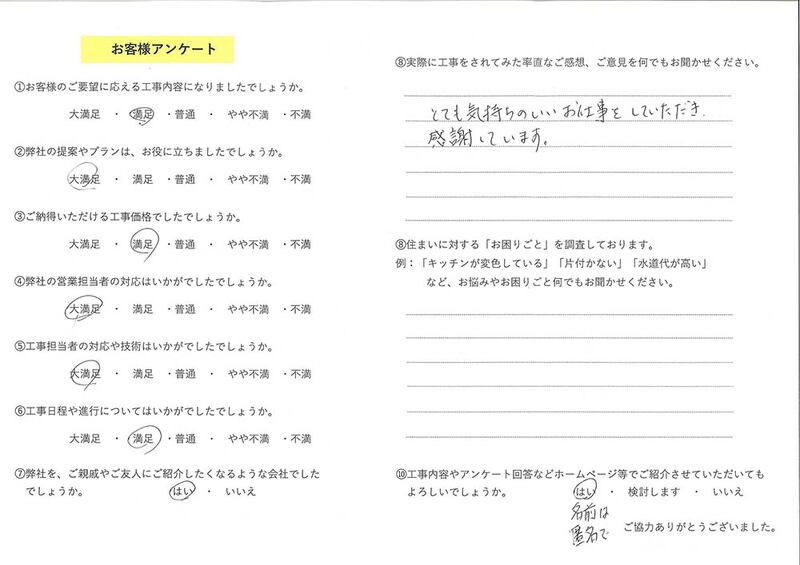 お客様アンケート
①お客様のご要望に応える工事内容になりましたでしょうか。
大満足 ・ 満足 ・普通 ・ やや不満 ・不満
②弊社の提案やプランは、お役に立ちましたでしょうか。
大満足 ・ 満足 ・普通 ・ やや不満 ・不満
③ご納得いただける工事価格でしたでしょうか。
大満足 ・ 満足 ・普通 ・ やや不満 ・不満
④弊社の営業担当者の対応はいかがでしたでしょうか。
大満足 ・ 満足 ・普通 ・ やや不満 ・不満
⑤工事担当者の対応や技術はいかがでしたでしょうか。
大満足 ・ 満足 ・普通 ・ やや不満 ・不満
⑥工事日程や進行についてはいかがでしたでしょうか。
大満足 ・ 満足 ・普通 ・ やや不満 ・不満
⑦弊社を、ご親戚やご友人にご紹介したくなるような会社でした
でしょうか。 はい ・ いいえ
⑧実際に工事をされてみた率直なご感想、ご意見を何でもお聞かせください。
とても気持ちのいいお仕事をしていただき、
感謝しています。
⑧住まいに対する「お困りごと」を調査しております。
例：「キッチンが変色している」「片付かない」「水道代が高い」
など、お悩みやお困りごと何でもお聞かせください。
⑩工事内容やアンケート回答などホームページ等でご紹介させていただいても
よろしいでしょうか。 はい ・ 検討します ・ いいえ
名前は
匿名で
ご協力ありがとうございました。